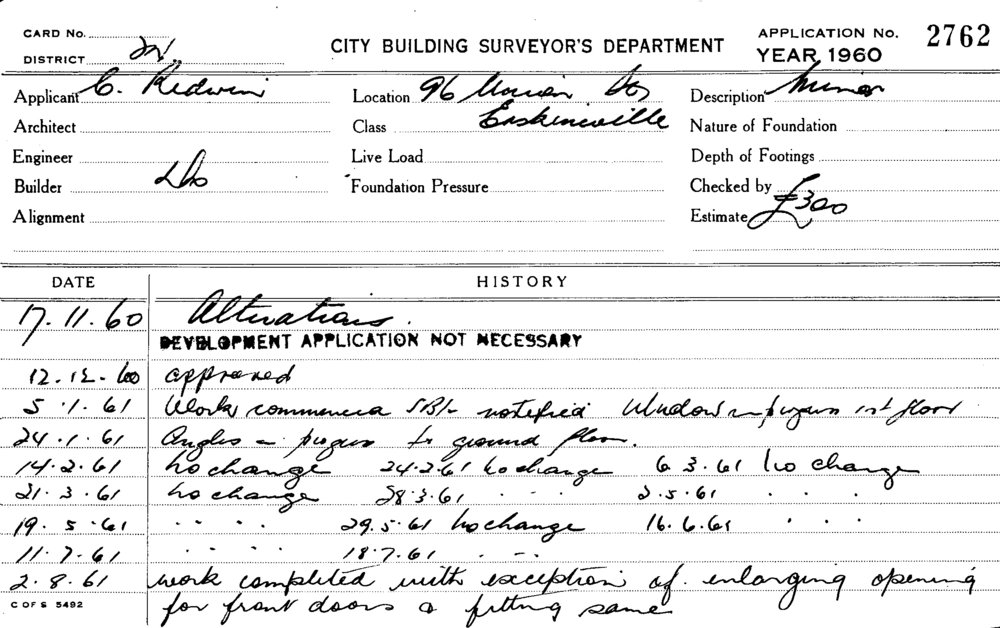 CARD No.
DISTRICT
CITY BUILDING SURVEYOR'S DEPARTMENT
APPLICATION No. 2762
YEAR 1960
Applicant C. Redwin
Location 96 Union St
Description Minor
Architect
Class Erskineville
Nature of Foundation
Engineer
Live Load
Depth of Footings
Builder do
Foundation Pressure
Checked by
Alignment
Estimate £300
DATE HISTORY
17.11.60 Alterations.
DEVELOPMENT APPLICATION NOT NECESSARY
12.12.60 approved
5.1.61 Work commenced notified Window in 1st floor
24.1.61 Angles in to ground floor.
14.2.61 No change 24.2.61 No change 6.3.61 No change
21.3.61 No change 28.3.61 . . . 2.5.61 . . .
19.5.61 . . . . 29.5.61 No change 16.6.61 . . .
11.7.61 . . . . 18.7.61 . . .
2.8.61 work completed with exception of enlarging opening
C OF S 5492 for front doors & fitting same